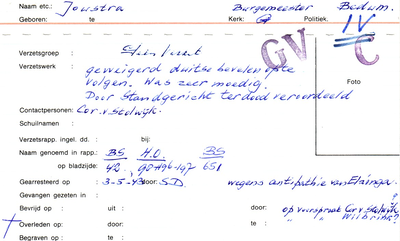 Naam etc.: Joustra Burgemeester Bedum.
Geboren: te Kerk: G Politiek. IV
GV C
Verzetsgroep :
Verzetswerk : geweigerd duitse bevelen op te
volgen. Was zeer moedig.
Door Standgericht ter dood veroordeeld
Foto
Contactpersonen: Cor. v. Stolwijk.
Schuilnamen :
Verzetsrapp. ingel. dd. : bij:
Naam genoemd in rapp.: BS H.O. BS
op bladzijde: 42. 90+96-197 651
Gearresteerd op : 3-5-43 door: S.D. wegens antipathie van Elsinga.
Gevangen gezeten in : ?
Bevrijd op : uit : door: op voorspraak Cor v. Stolwijk
Overleden op: door: te " " Wilbrink?
Begraven op : te :